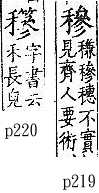 穇
䅳穇穗不實
見齊人要術
p219
字書云
禾長皃
p220